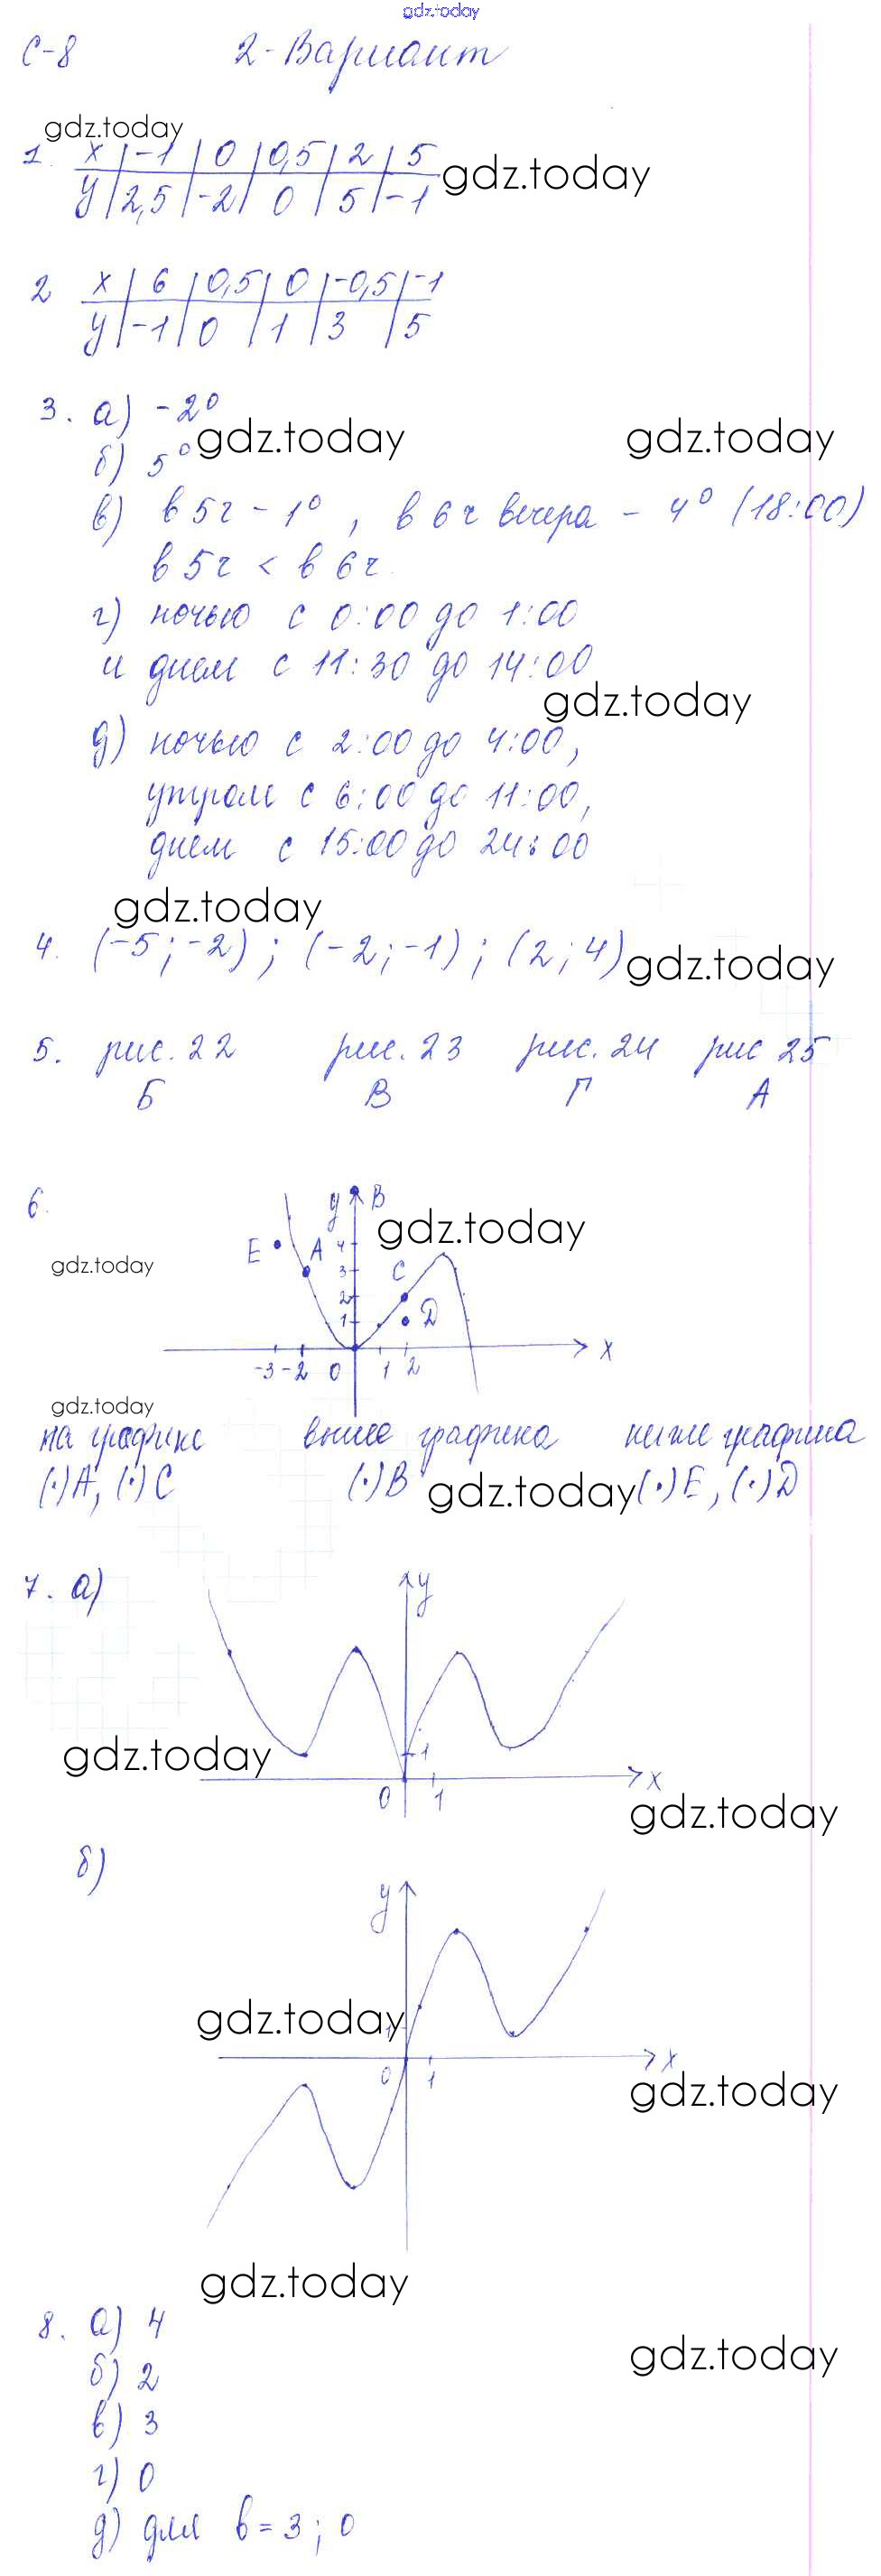 gdz.today
С-8 2-Вариант
gdz.today
1. x | -1 | 0 | 0,5 | 2 | 5
gdz.today
y | 2,5 | -2 | 0 | 5 | -1
2 x | 6 | 0,5 | 0 | -0,5 | -1
y | -1 | 0 | 1 | 3 | 5
3. а) -2°
gdz.today gdz.today
б) 5°
в) в 5г - 1°, в 6г вечера - 4° (18:00)
в 5г < в 6г.
г) ночью с 0:00 до 1:00
и днем с 11:30 до 14:00
gdz.today
д) ночью с 2:00 до 4:00,
утром с 6:00 до 11:00,
днем с 15:00 до 24:00
gdz.today
4. (-5; -2); (-2; -1); (2; 4)
gdz.today
5. рис. 22 рис. 23 рис. 24 рис 25
Б В Г А
6.
y B
gdz.today
E A 4
gdz.today
3 C
2
1 D
x
-3 -2 0 1 2
gdz.today
на графике выше графика ниже графика
(·)A, (·)C (·)B gdz.today (·)E, (·)D
7. а)
y
gdz.today
1
x
0 1
gdz.today
б)
y
gdz.today
1
x
0 1
gdz.today
gdz.today
8. а) 4
б) 2
gdz.today
в) 3
г) 0
д) для b = 3; 0